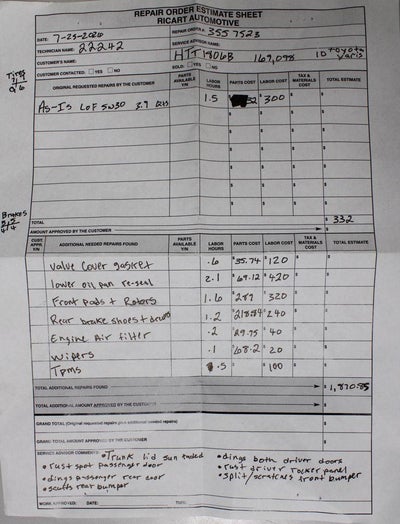 REPAIR ORDER ESTIMATE SHEET
RICART AUTOMOTIVE
DATE: 7-25-2020 REPAIR ORDER NO.: 3557523
TECHNICIAN NAME: 22242 SERVICE ADVISOR NAME:
CUSTOMER'S NAME: HTT1806B 169,098 10 Toyota Yaris
CUSTOMER CONTACTED: YES NO SOLD: YES NO
ORIGINAL REQUESTED REPAIRS BY THE CUSTOMER PARTS AVAILABLE Y/N LABOR HOURS PARTS COST LABOR COST TAX & MATERIALS COST TOTAL ESTIMATE
As-Is LOF 5W30 3.9 qts 1.5 32 $300
TOTAL $332
AMOUNT APPROVED BY THE CUSTOMER $
Brakes
CUST. APPR. Y/N ADDITIONAL NEEDED REPAIRS FOUND PARTS AVAILABLE Y/N LABOR HOURS PARTS COST LABOR COST TAX & MATERIALS COST TOTAL ESTIMATE
Valve Cover gasket .6 $35.74 $120
lower oil pan re-seal 2.1 $69.12 $420
Front pads + Rotors 1.6 $289 320
Rear brake shoes + drums 1.2 $218.84 $240
Engine Air filter .2 $29.75 $40
Wipers .1 $68.2 $20
TPMS .5 $ $100
TOTAL ADDITIONAL REPAIRS FOUND $1,870.85
TOTAL ADDITIONAL AMOUNT APPROVED BY THE CUSTOMER $
GRAND TOTAL (Original requested repairs plus additional needed repairs) $
GRAND TOTAL AMOUNT APPROVED BY THE CUSTOMER $
SERVICE ADVISOR COMMENTS: • Trunk lid sun faded • dings both driver doors
• rust spot passenger door • rust driver rocker panel
• dings passenger rear door • split/scratches front bumper
• scuffs rear bumper
WORK APPROVED: DATE: TIME: